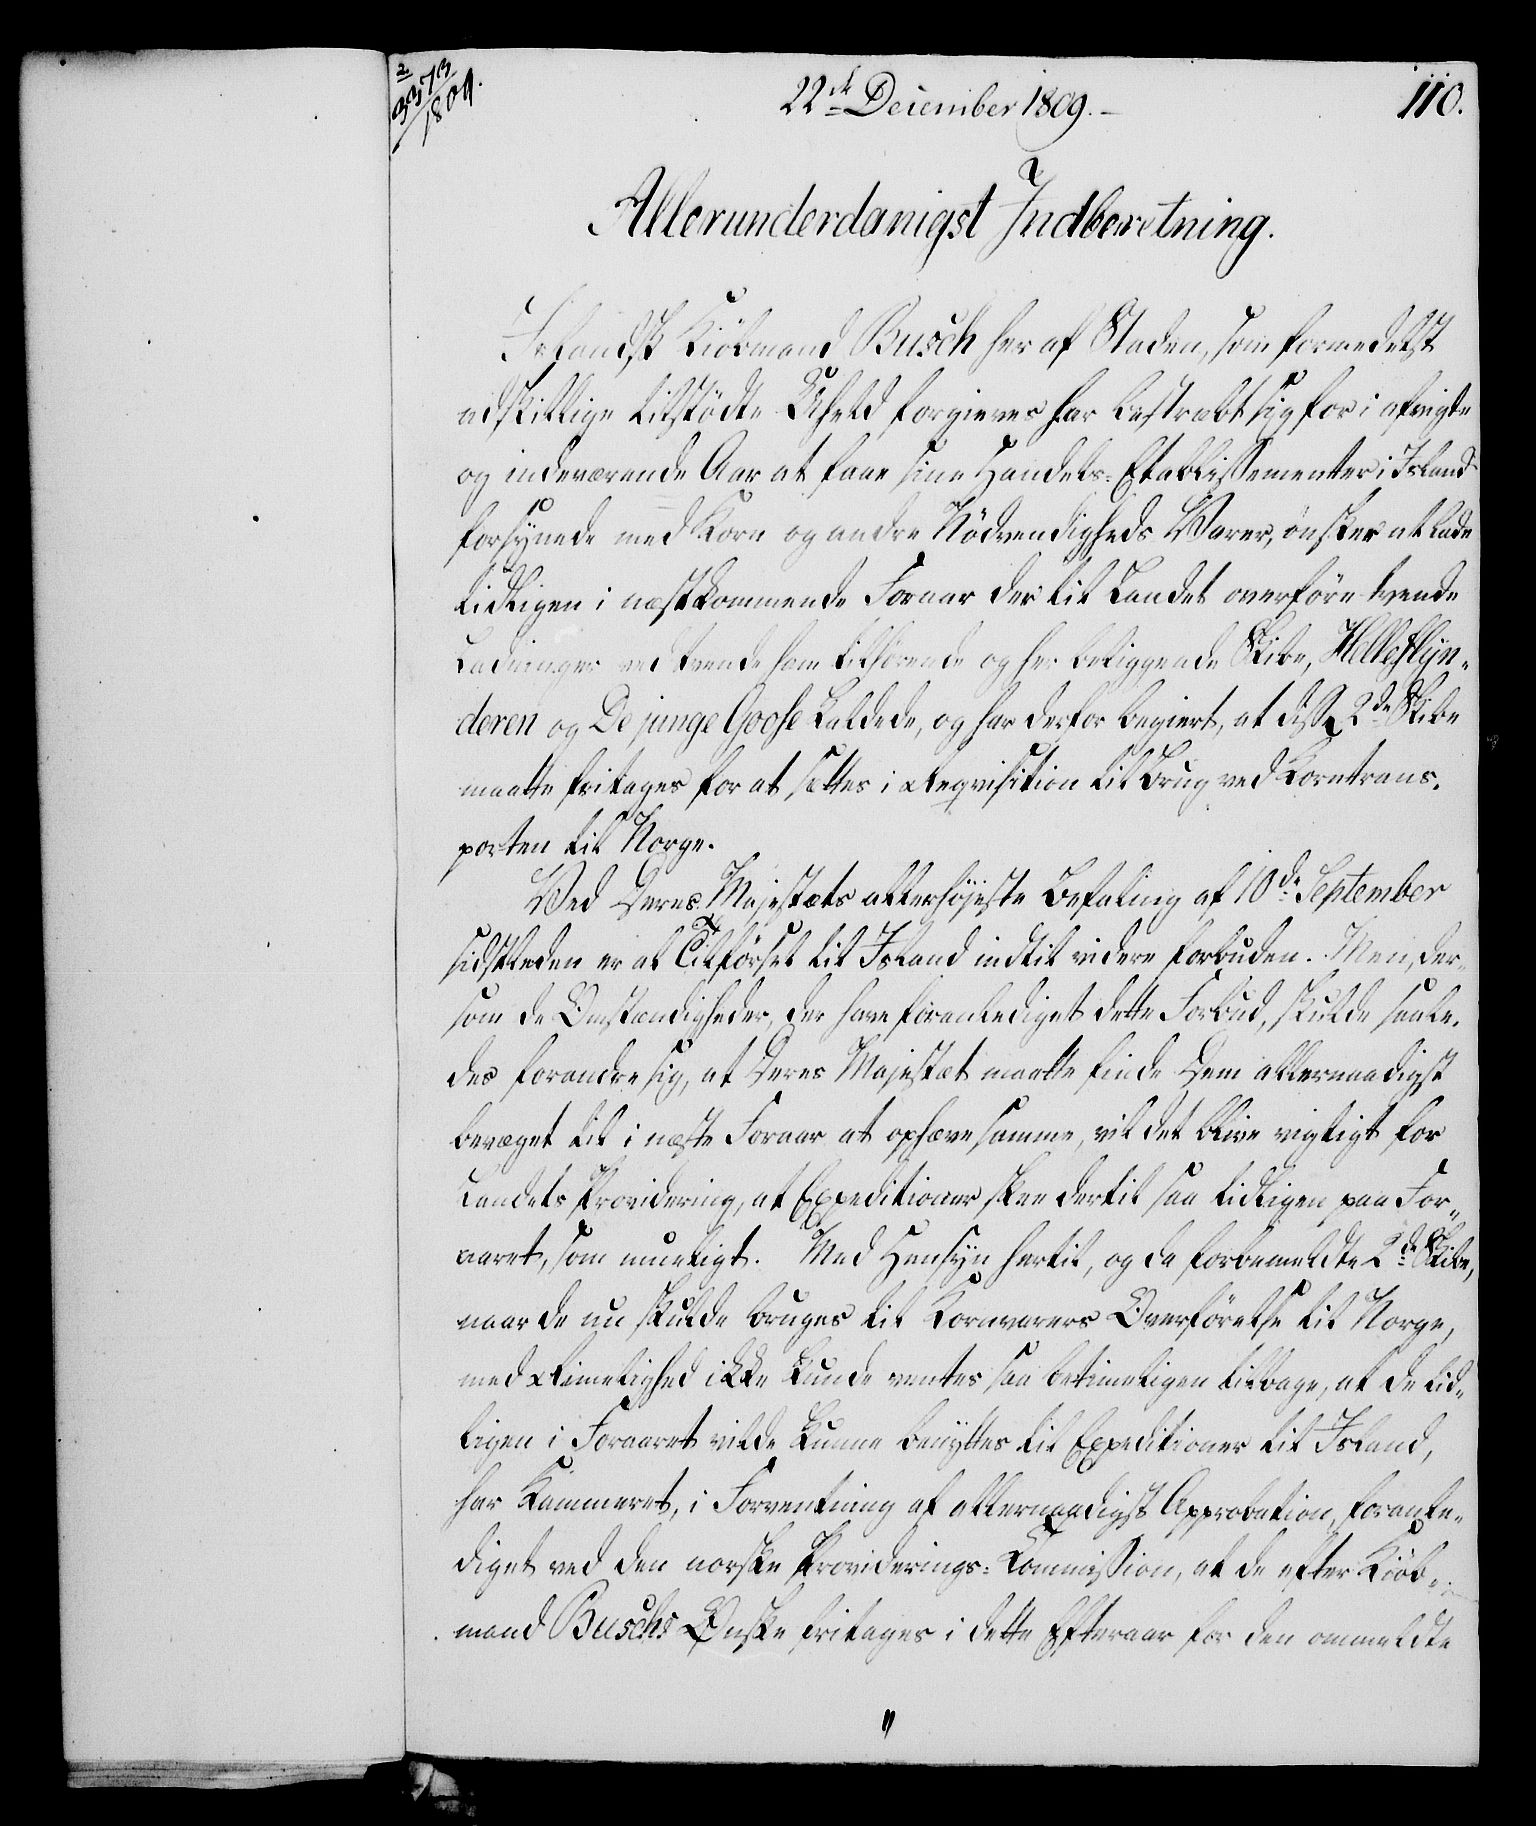 2
3373
1809.
22de December 1809.-
110.
Allerunderdanigst Indberetning.
Islandsk Kiøbmand Busch her af Staden, som formedelst
adskillige tilstødte Uheld forgieves har bestræbt sig for i afvigte
og indeværende Aar at faae sine Handels-Etablissementer i Island
forsynede med Korn og andre Nödvendigheds Varer, ønsker at lade
tidligen i næstkommende Foraar der til Landet overföre tvende
Ladninger ved tvende ham tilhørende og her beliggende Skibe, Helleflyn-
deren og De junge Goose kaldede, og har derfor begiert, at disse 2de Skibe
maatte fritages for at sættes i Reqvisition til Brug ved Korntrans-
porten til Norge.
Ved Deres Majestæts allerhöjeste Befaling af 10de September
sidstleden er al Tilførsel til Island indtil videre forbuden. Men, der-
som de Omstændigheder, der have foranlediget dette Forbud, skulde saale-
des forandre sig, at Deres Majestæt maatte finde Dem allernaadigst
bevæget til i næste Foraar at ophæve samme, vil det blive vigtigt for
Landets Providering, at Expeditioner skee dertil saa tidligen paa For-
aaret, som mueligt. Med Hensyn hertil, og da forbemeldte 2de Skibe,
naar de nu skulde bruges til Kornvarers Overförelse til Norge,
med Rimelighed ikke kunde ventes saa betimeligen tilbage, at de tid-
ligen i Foraaret vilde kunne benyttes til Expeditioner til Island,
har Kammeret, i Forventning af allernaadigst Approbation, foranle-
diget ved den norske Providerings-Commission, at de efter Kiöb-
mand Buschs Ønske fritages i dette Efteraar for den ommeldte
"